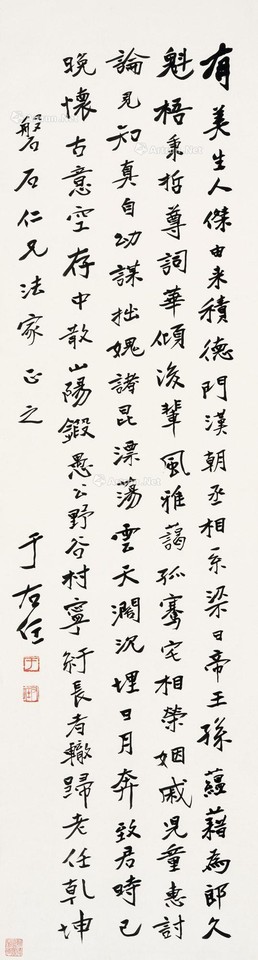 有美生人傑由来積德門漢朝丞相系梁日帝王孫蘊藉為郎久
魁梧秉哲尊詞華傾後輩風雅藹孤騫宅相榮姻戚児童惠討
論見知真自幼謀拙媿諸昆漂蕩雲天濶沉埋日月奔致君時已
晚懷古意空存中散山陽鍛愚公野谷村寧紆長者轍歸老任乾坤
磐石仁兄法家正之
于右任